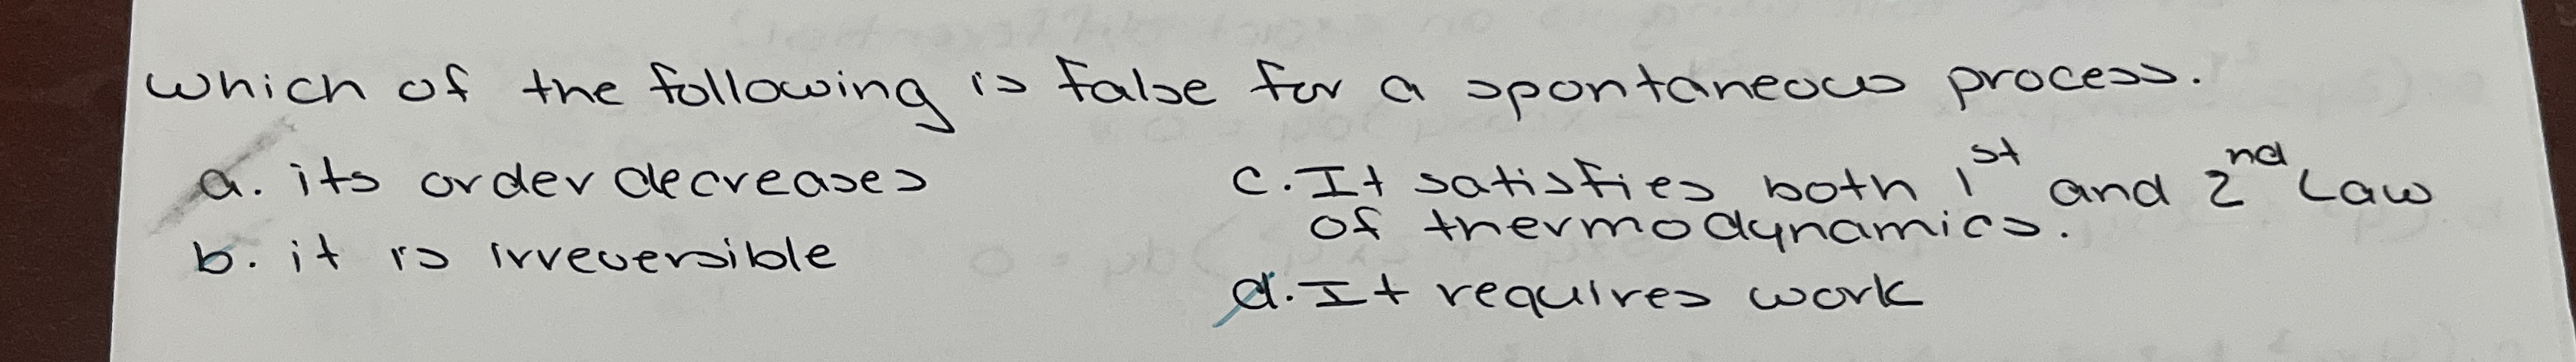 which of the following is false for a spontaneous process.
a. its order decreases
b. it is irreversible
c. It satisfies both 1st and 2nd Law
of thermodynamics.
d. It requires work